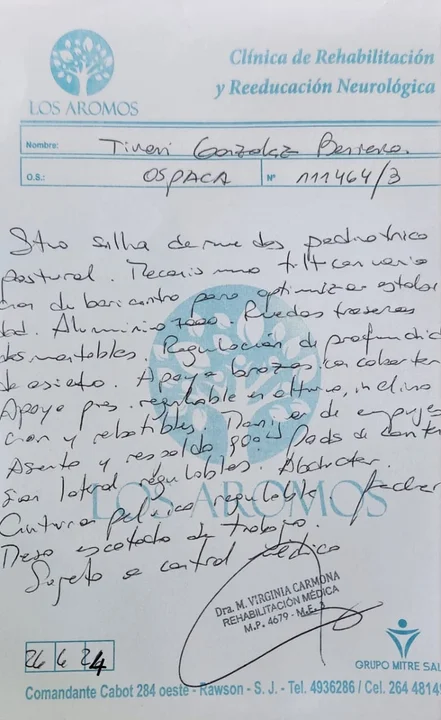 LOS AROMOS
Clínica de Rehabilitación
y Reeducación Neurológica
Nombre: Gonzalez
O.S.: OSPACA Nº 111464/3
Stro silla de ruedas pediatrica
postural. Mecanismo tilt con varia
cion de baricentro para optimizar estabi
dad. Aluminio 7000. Ruedas traseras
desmontables. Regulación de profundid
de asiento. Apoya brazos con cobertor
Apoya pies regulable en altura, inclina
cion y rebatibles. Manijas de empuje
Asiento y respaldo Pads de conten
sion lateral regulables. Abductor.
LOS AROMOS
Cinturon pelvico regulable.
Mesa escotada de trabajo.
Sujeto a control médico
Dra. M. VIRGINIA CARMONA
REHABILITACIÓN MÉDICA
M.P. 4679 - M.E.
26 6 24
GRUPO MITRE SAL
Comandante Cabot 284 oeste - Rawson - S. J. - Tel. 4936286 / Cel. 264 48149